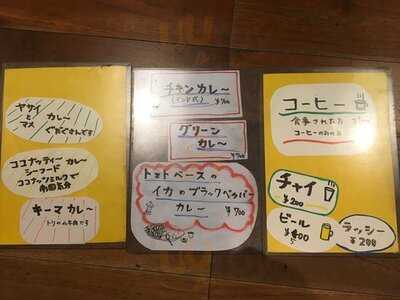 ヤサイ
と
マメ
カレー
ぐだくさんです！
ココナッティー カレー
シーフード
ココナッツミルクで
南国気分
キーマ カレー
チキンカレー
(インド式) ¥700
グリーン
カレー
¥700
トマトベースの
イカのブラックペッパー
カレー ¥700
コーヒー
食事された方
コーヒーのみの方
チャイ
¥200
ビール
¥400
ラッシー
¥200